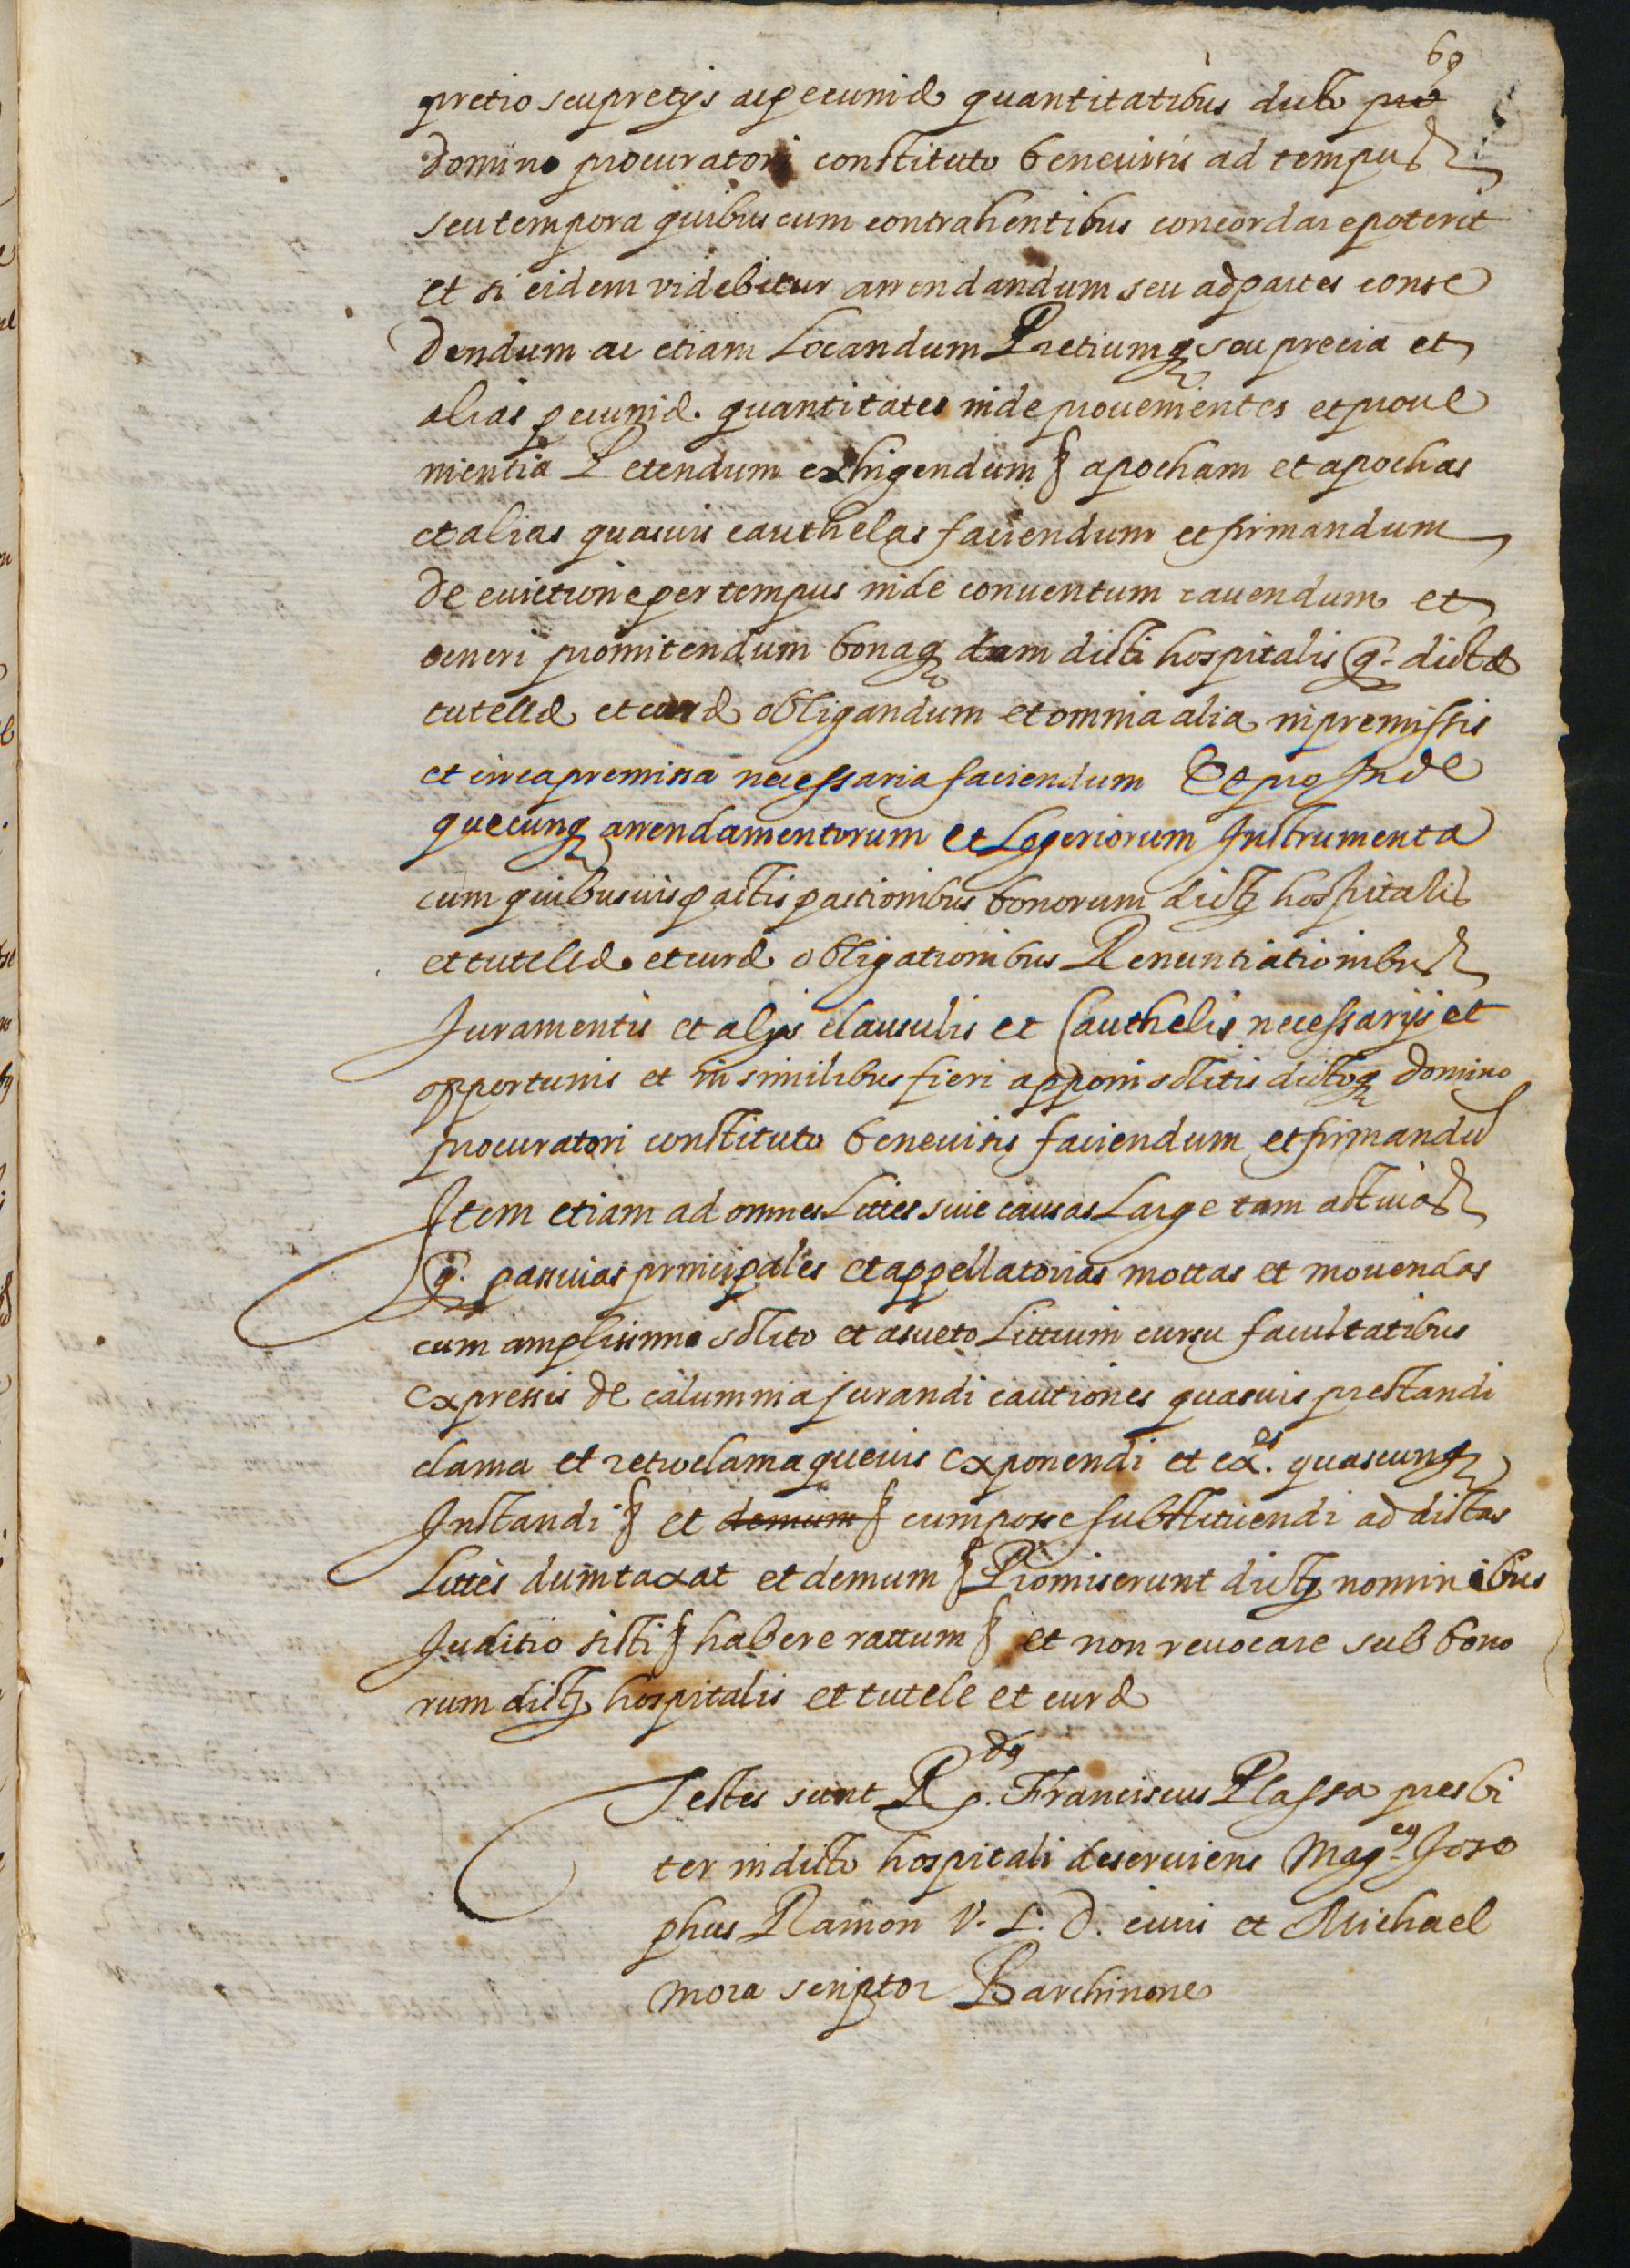 69
pretio seu pretijs ac pecuniæ quantitatibus dicto pro
domino procuratori constituto benevisis ad tempus
seu tempora quibus cum contrahentibus concordare poterit
et si eidem videbitur arrendandum seu ad partes conse
dendum ac etiam Locandum Pretiumq seu precia et
alias pecuniæ quantitates inde provenientes et prove
nientia Petendum exhigendum § apocham et apochas
et alias quasvis cauthelas faciendum et firmandum
de evictione per tempus inde conventum cavendum et
teneri promitendum bonaq tam dicti hospitalis q. dictæ
tutellæ et curæ obligandum et omnia alia in premissis
et circa premissa necessaria faciendum Et pro Inde
quecunq arrendamentorum et Logeriorum Instrumenta
cum quibusvis pactis pactionibus bonorum dictj hospitalis
et tutellæ et curæ obligationibus Renuntiationibus
Juramentis et alijs clausulis et Cauthelis necessarijs et
opportunis et in similibus fieri apponi solitis dictoq domino
procuratori constituto benevisis faciendum et firmandū
Item etiam ad omnes Littes sive causas Large tam activas
q. passivas principales et appellatorias mottas et movendas
cum amplissimo solito et asueto Littium cursu facultatibus
expressis de calumnia jurandi cautiones quasvis prestandi
clama et retroclama quevis exponendi et ex.es quascunq
Instandi § et demum § cum posse substituendi ad dictas
Littes dumtaxat et demum § Promiserunt dictj nominibus
Juditio sisti § habere rattum § et non revocare sub bono
rum dictj hospitalis et tutele et curæ
Testes sunt R. dq. Franciscus Plassa presbi
ter in dicto hospitali deserviens Mag.cq Jose
phus Ramon V. J. D. civis et Michael
Mora scriptor Barchinone